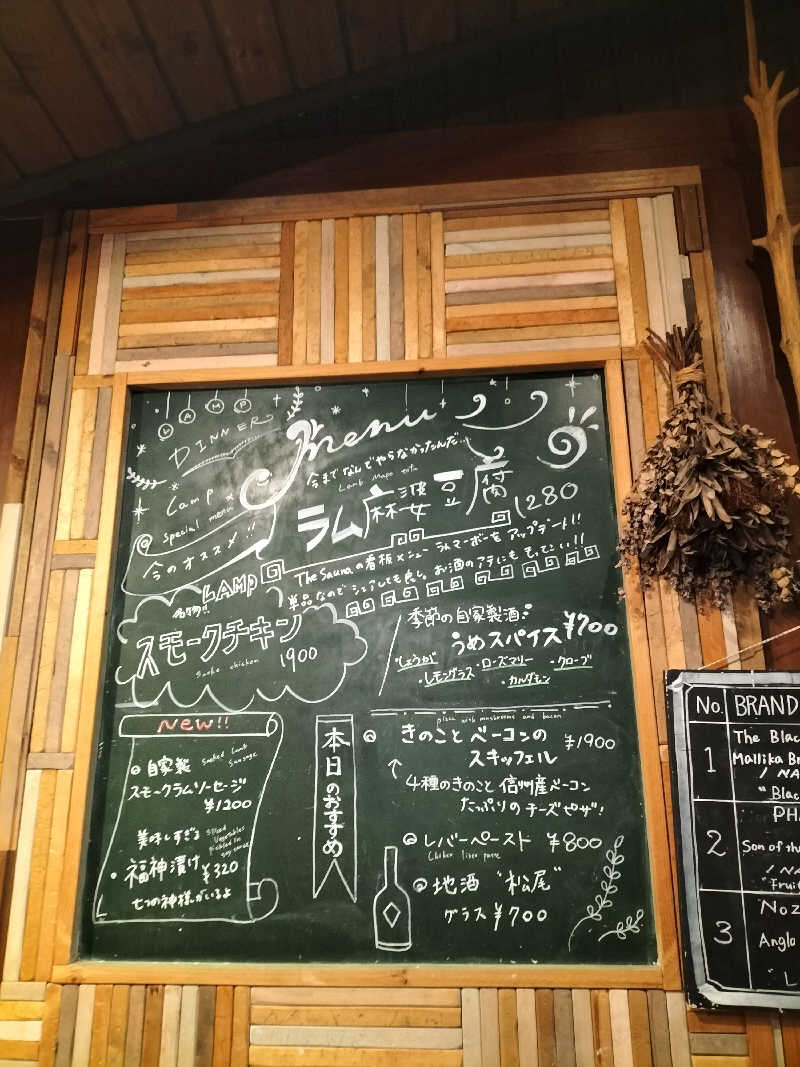 LAMP
DINNER
menu
Lamp ×
special menu
今のオススメ!!
今までなんでやらなかったんだ…
Lamb Mapo tofu
ラム麻婆豆腐 1280
The Saunaの看板メニュー ラムマーボーを アップデート!!
単品なので シェアしても良し。お酒のアテにも もってこい!!
LAMP
名物!!
スモークチキン
Smoke chicken
1900
季節の自家製酒
うめスパイス ¥700
・しょうが ・ローズマリー ・クローブ
・レモングラス ・カルダモン
New!!
自家製 Smoked Lamb
Sausage
スモークラムソーセージ
¥1200
美味しすぎる
Sliced
Vegetables
pickled in
soy sauce
・福神漬け ¥320
七つの神様がいるよ
本日のおすすめ
pizza with mushrooms and bacon
きのことベーコンの
スキッフェル ¥1900
4種のきのこ 信州産ベーコン
たっぷりの チーズピザ!
レバーペースト ¥800
Chicken liver paste
地酒 "松尾"
グラス ¥700
No. BRAND
1
The Blac
Mallika Br
/ NA
"Blac
2
PHA
Son of th
/ NA
"Fruit
3
Noz
Anglo
"L